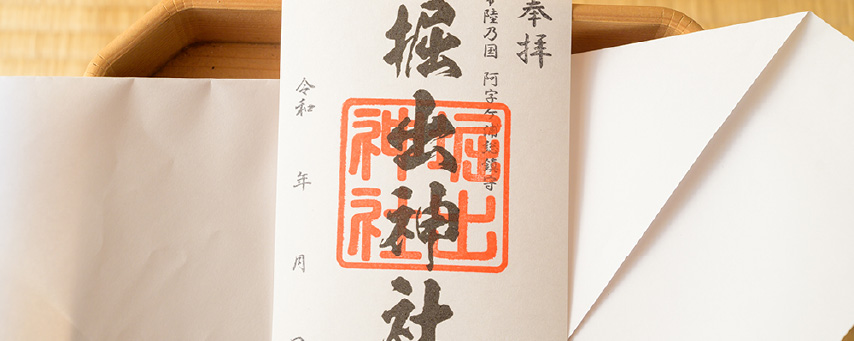 奉拝
常陸乃国 阿字ケ浦総鎮守
堀出神社
堀出
神社
令和 年 月